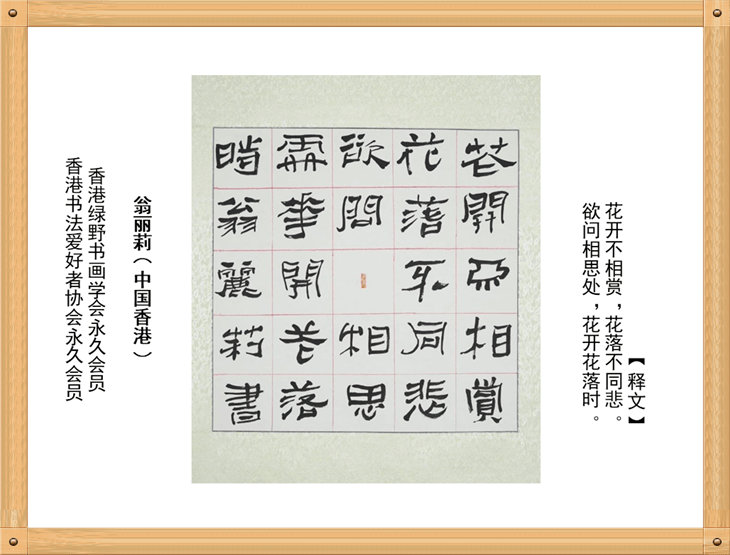 【释文】
花开不相赏，花落不同悲。
欲问相思处，花开花落时。
芲開不相賞
花落不同悲
欲問相思
處華開芲落
時翁麗莉書
翁丽莉（中国香港）
香港绿野书画学会永久会员
香港书法爱好者协会永久会员